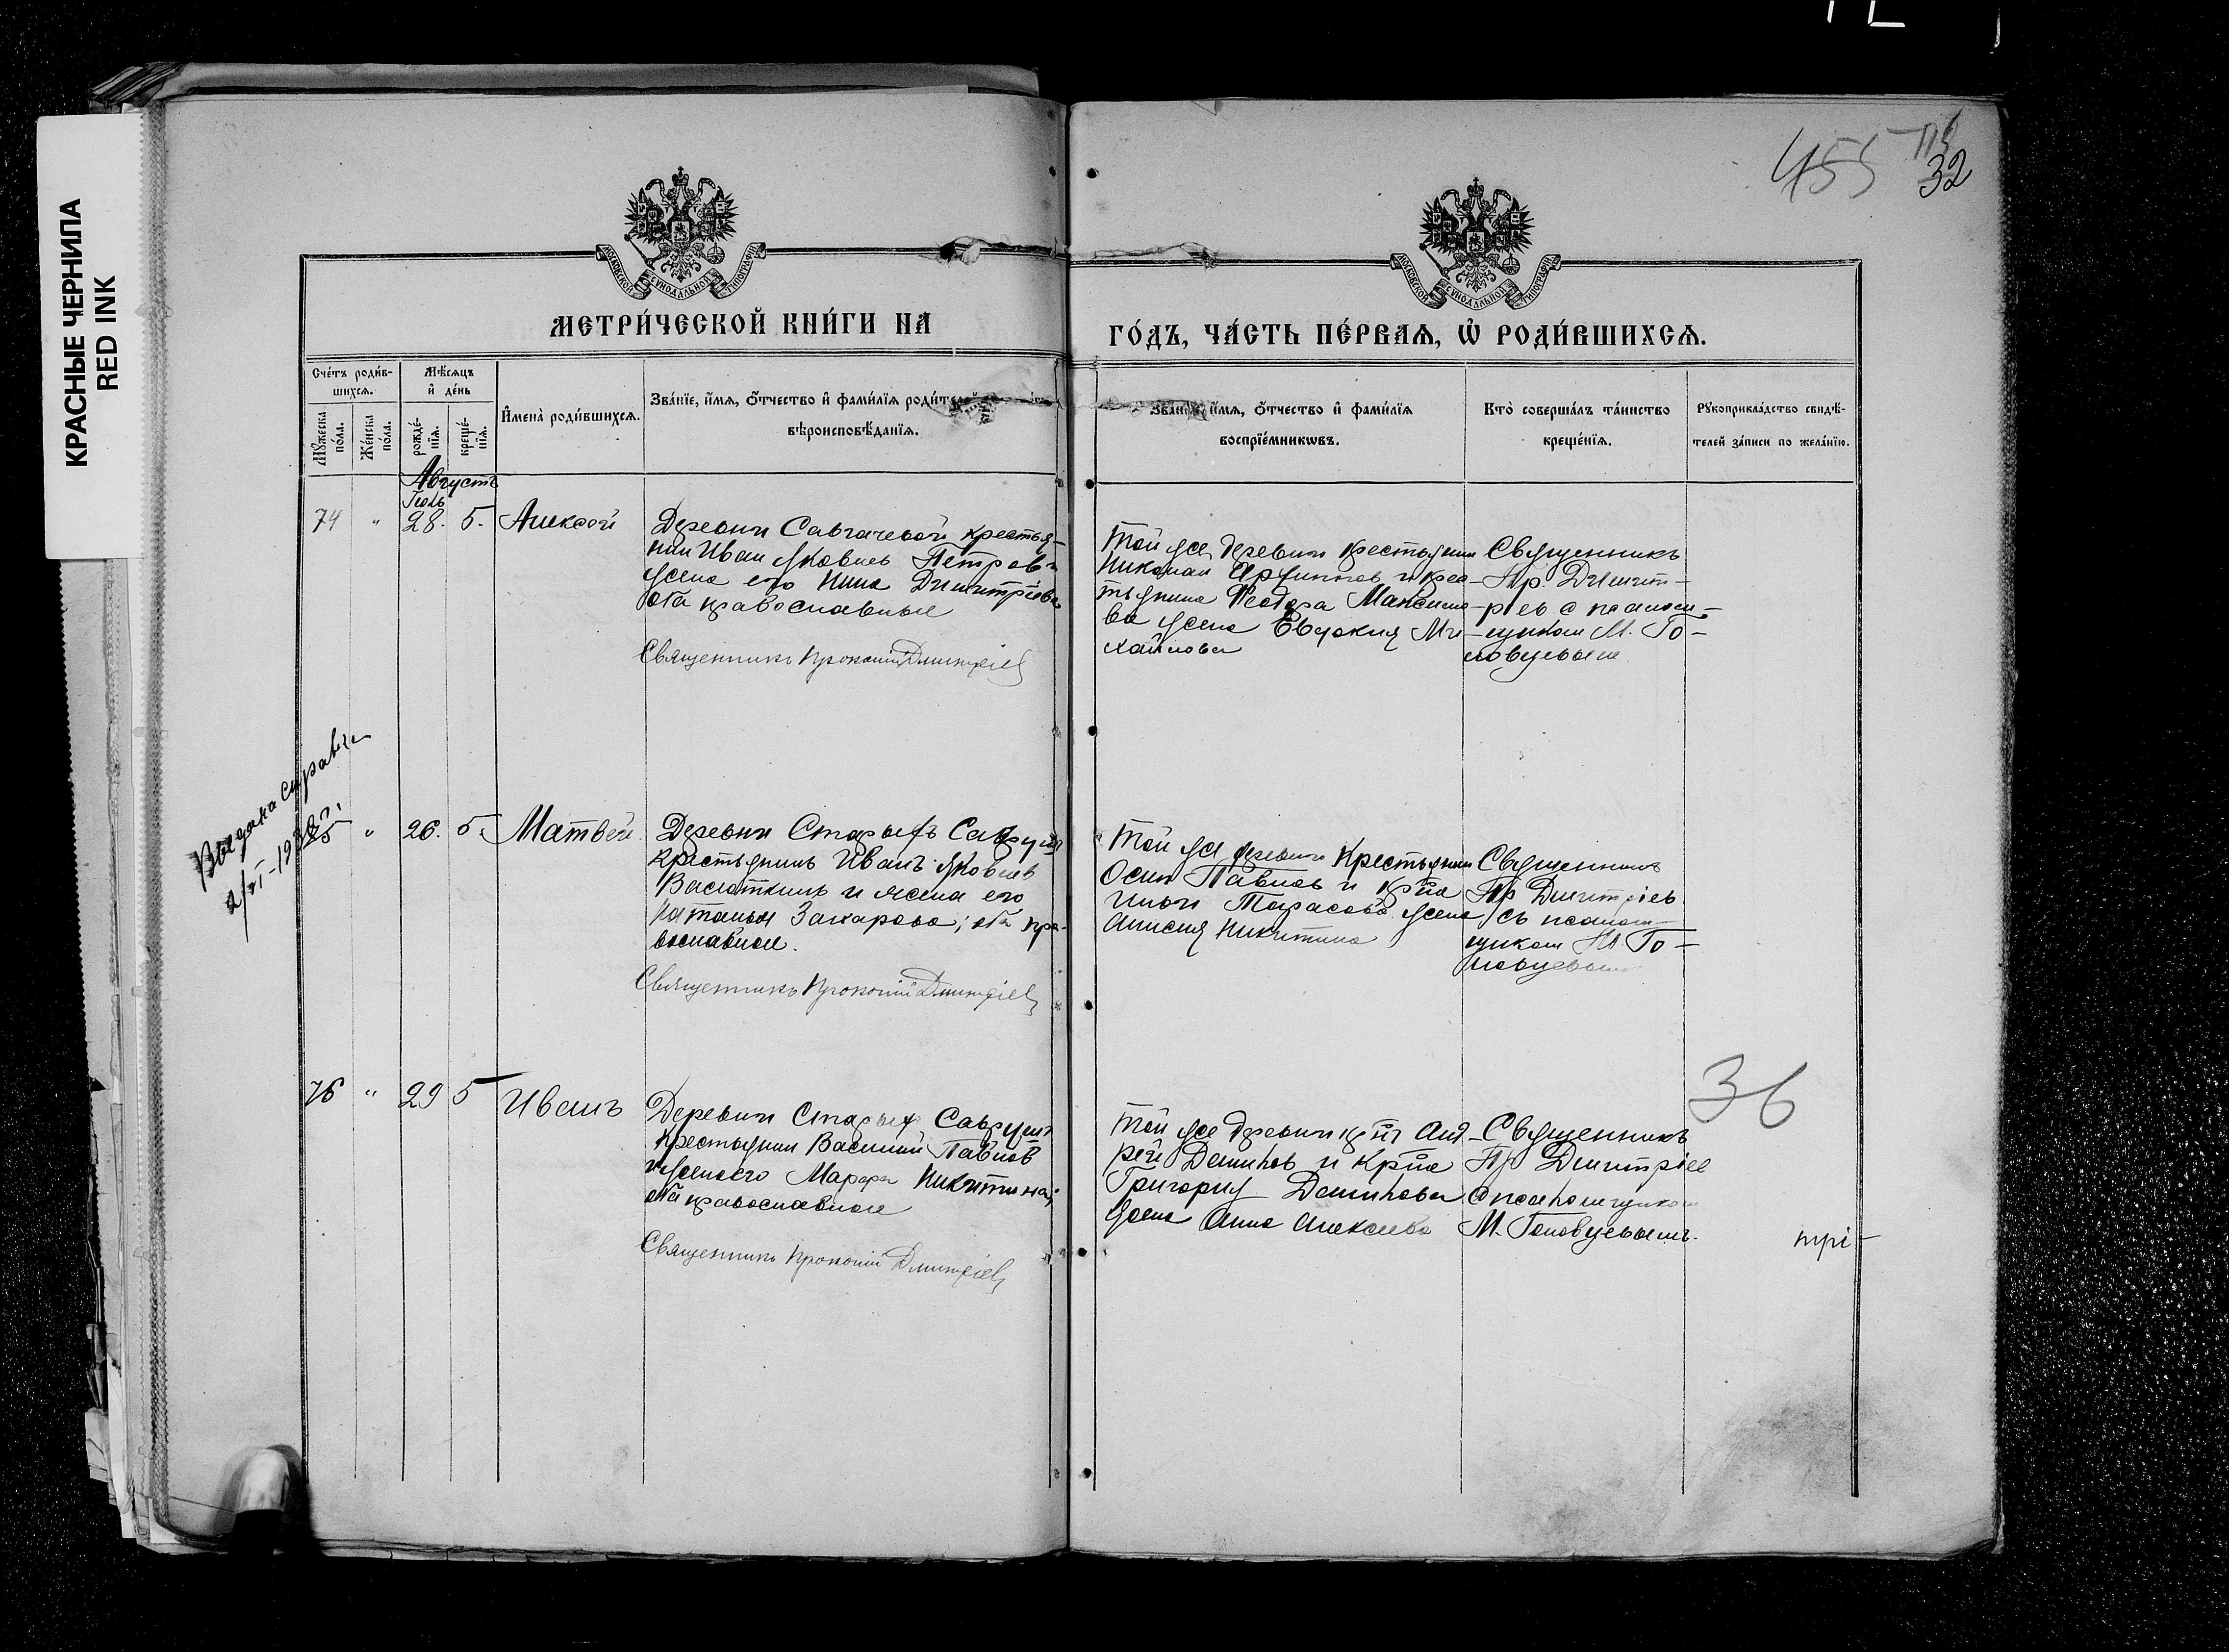 КРАСНЫЕ ЧЕРНИЛА
RED INK
455
32
МОСКОВСКОЙ СѴНОДАЛЬНОЙ ТИПОГРАФІИ
МОСКОВСКОЙ СѴНОДАЛЬНОЙ ТИПОГРАФІИ
МЕТРИ́ЧЕСКОЙ КНИ́ГИ НА
ГО́ДЪ, ЧА́СТЬ ПЕ́РВАѦ, Ѡ҆ РОДИ́ВШИХСѦ.
Сче́тъ роди́в-
шихсѧ.
Мꙋ́жеска
по́ла.
Же́нска
по́ла.
Мѣ́сѧцъ
и҆ де́нь
рожде́-
нїѧ.
креще́-
нїѧ.
И҆мена̀ роди́вшихсѧ.
Зва́нїе, и҆́мѧ, ѻ҆́тчество и҆ фами́лїѧ
вѣроисповѣ́данїѧ.
и҆́мѧ, ѻ҆́тчество и҆ фами́лїѧ
воспрїе́мникѡвъ.
Кто̀ соверша́лъ та́инство
креще́нїѧ.
Рꙋкоприкла́дство свидѣ́-
телей за́писи по жела́нїю.
Августъ
Іюль
74 " 28. 5. Алексѣй
Деревни Савгачевой крестья-
нин Иван Яковлев Петров и
жена его Нина Димитріева
оба православные
Священникъ Прокопій Дмитріев
Той же деревни крестьянин
Николай Архиппов и крес-
тьянина Феодора Максимо-
ва жена Евдокия Ми-
хайлова
Священникъ
Пр Димит-
ріев с псалом-
щиком М. Го-
ловцевым
Выдана справка
75 " 26. 5. Матвей
Деревни Старыхъ
крестьянинъ Иванъ Яковлев
и жена его
Наталья Захарова; оба пра-
вославные.
Священникъ Прокопій Дмитріев
Той же деревни Крестьянин
Осип Павлов и кр-на
Ильи Тарасова жена
Анисия Никитина
Священникъ
Пр Димитріев
съ псалом-
щиком М. Го-
ловцевым
76 " 29 5 Иванъ
Деревни Старых
Крестьянин Василий Павлов
и жена его Марфа Никитина;
оба православные
Священникъ Прокопій Дмитріев
Той же деревни кр-нъ Анд-
рей Демидов и Кр-на
Григория Демидова
жена Анна Алексеева
Священникъ
Пр Димитріев
с псаломщиком
М. Головцевымъ.
36
три-